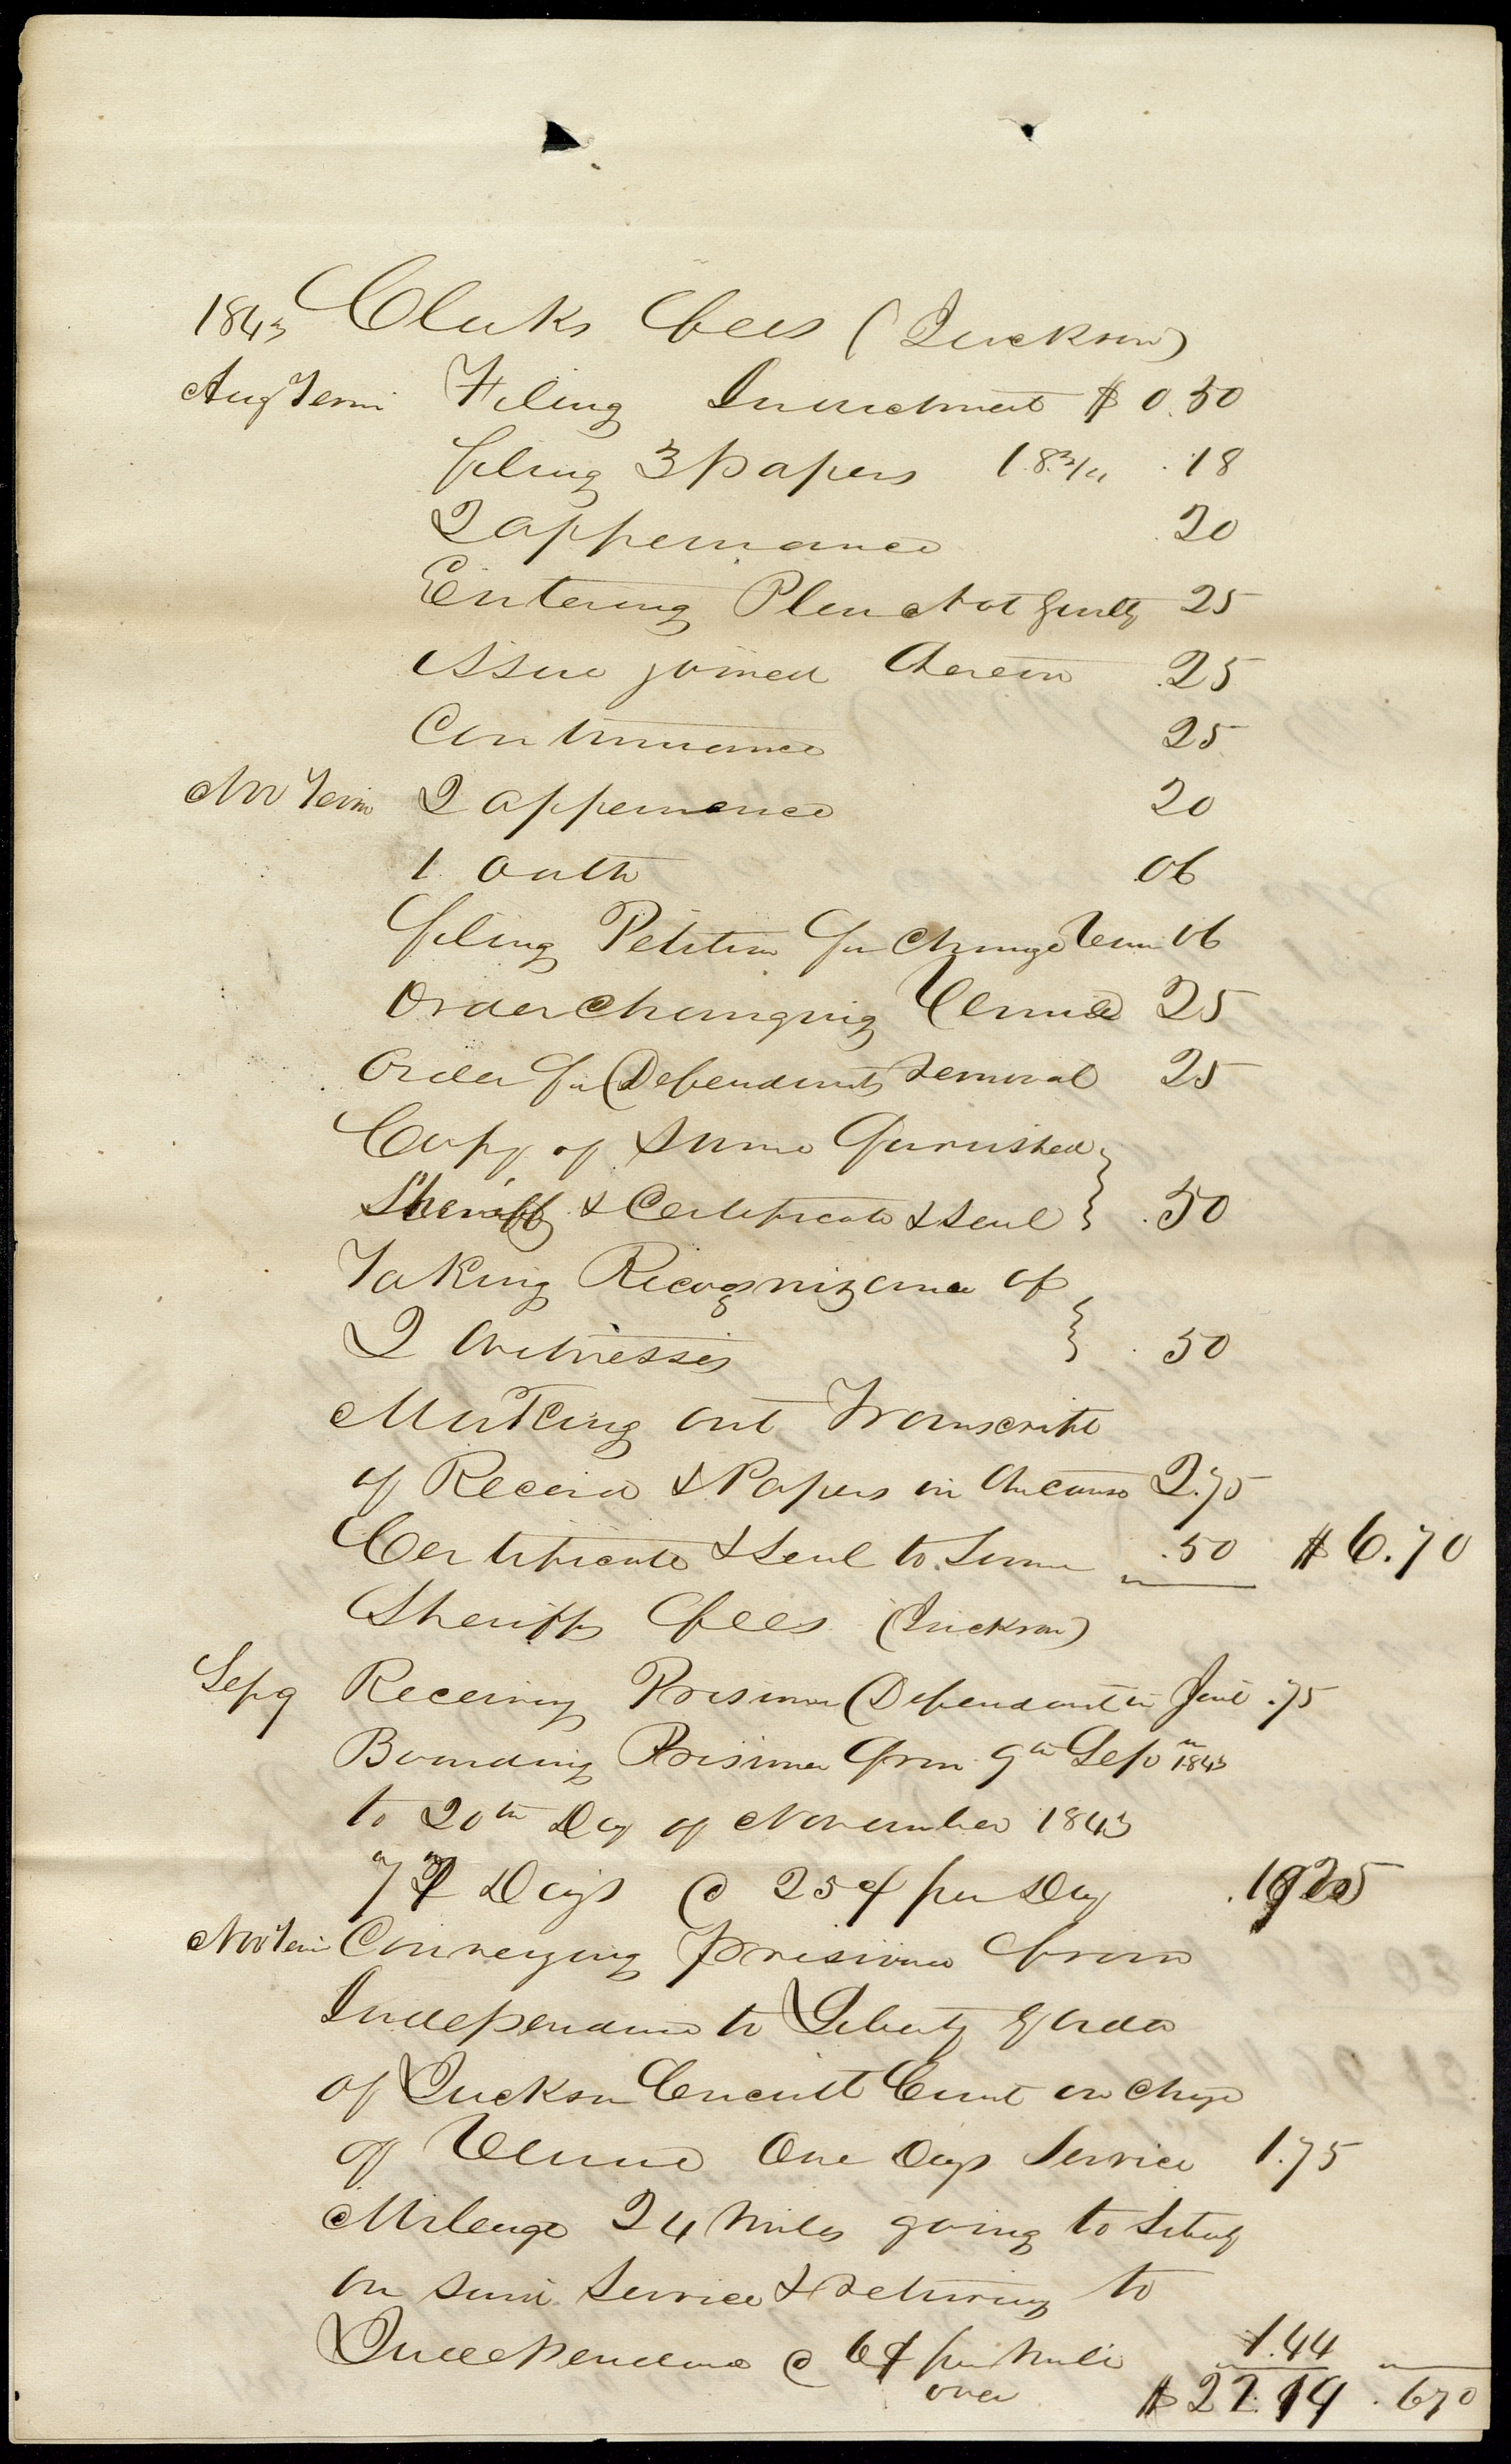 1843 Clerks fees (Jackson)
Aug Term Filing Indictment $0.50
filing 3 papers 18 3/4 .18
2 appearance .20
Entering Plea Not Guilty 25
Issue joined therein .25
Continuance 25
Nov Term 2 appearance 20
1 Oath .06
filing Petition for Change Venue 06
Order changing Venue 25
Order for Defendants removal 25
Copy of same furnished
Sheriff & Certificate & Seal .50
Taking Recognizance of
2 Witnesses .50
Making out Transcript
of Record & Papers in the cause 2.75
Certificate & Seal to Same .50 $6.70
Sheriffs fees (Jackson)
Sep 9 Receiving Prisoner Defendant in Jail .75
Boarding Prisoner from 9th Sep 1843
to 20th Day of November 1843
Days @ 25¢ per Day
Nov Term Conveying prisoner from
Independence to Liberty by order
of Jackson Circuit Court on chge
of Venue One days Service 1.75
Mileage 24 Miles going to Liberty
on said Service & returning to
Independence @ 6¢ per Mile 1.44
over $ .670